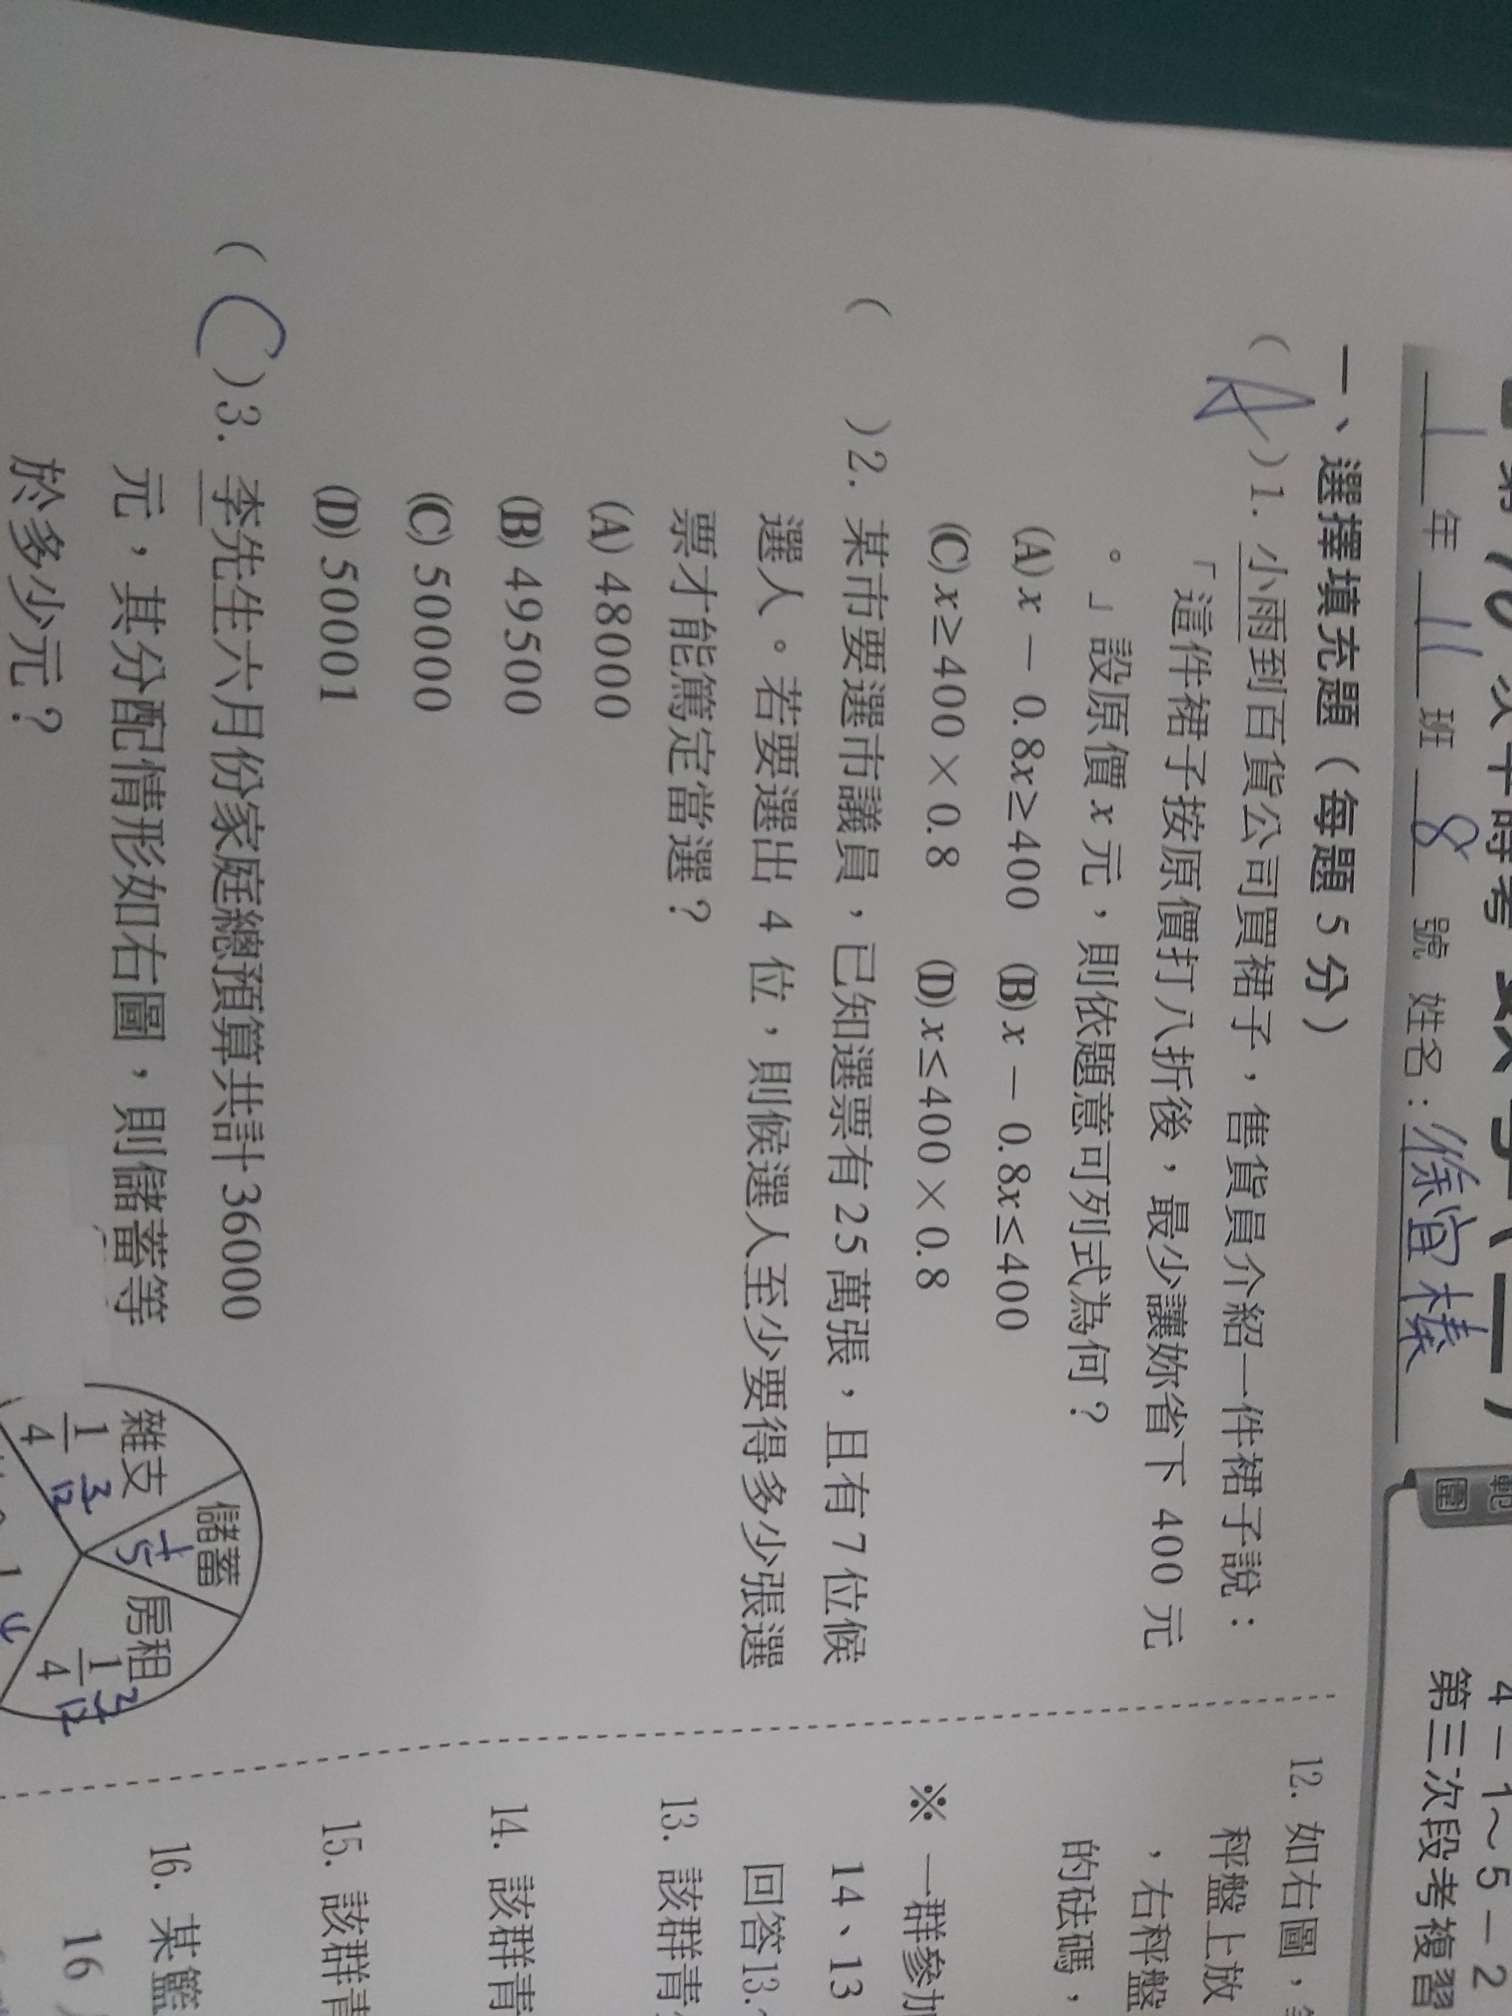 1年11班8號 姓名：徐宜榛
範圍
4－1～5－2
第三次段考複習
一、選擇填充題（每題5分）
(A)1. 小雨到百貨公司買裙子，售貨員介紹一件裙子說：
「這件裙子按原價打八折後，最少讓妳省下400元
。」設原價x元，則依題意可列式為何？
(A) x－0.8x≥400 (B) x－0.8x≤400
(C) x≥400×0.8 (D) x≤400×0.8
( )2. 某市要選市議員，已知選票有25萬張，且有7位候
選人。若要選出4位，則候選人至少要得多少張選
票才能篤定當選？
(A) 48000
(B) 49500
(C) 50000
(D) 50001
(C)3. 李先生六月份家庭總預算共計36000
元，其分配情形如右圖，則儲蓄等
於多少元？
儲蓄
雜支
1/4
3/12
房租
1/4
3/12
12. 如右圖，
秤盤上放
，右秤盤
的砝碼，
※ 一群參加
14、13
回答13.
13. 該群青
14. 該群青
15. 該群青
16. 某籃
16